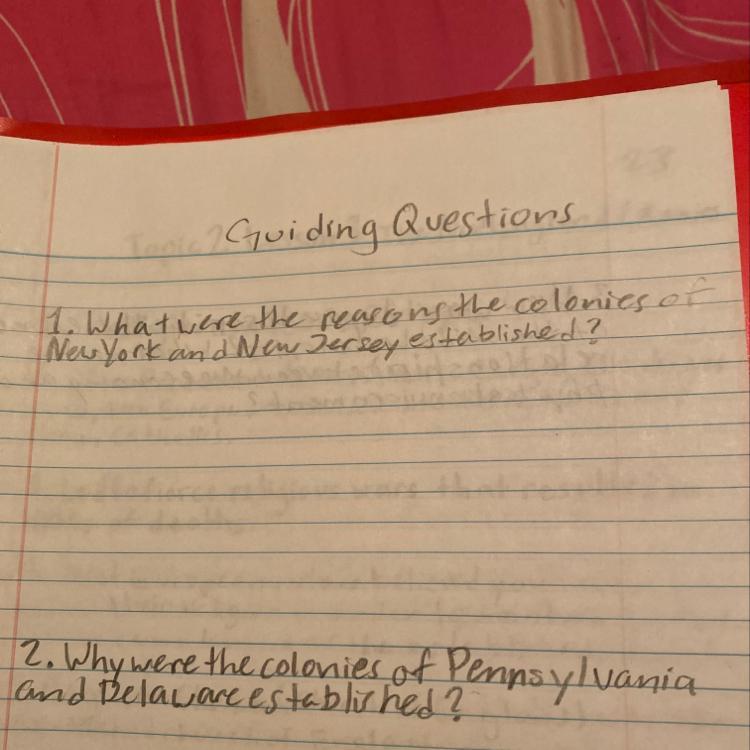 Guiding Questions
1. What were the reasons the colonies of
New York and New Jersey established?
2. Why were the colonies of Pennsylvania
and Delaware established?